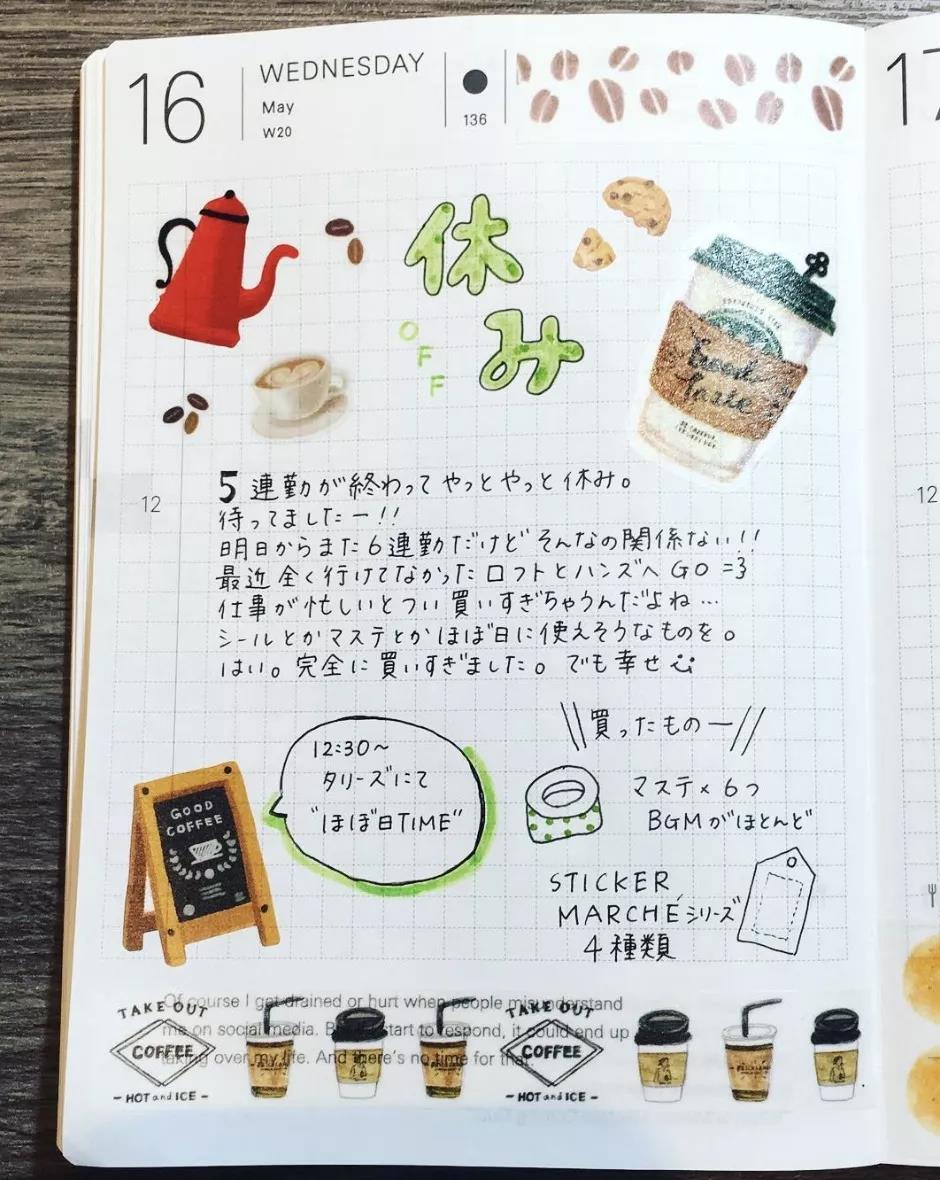 16
WEDNESDAY
May
W20
136
17
休
み
OFF
Good
Taste
5連勤が終わってやっとやっと休み。
12
12
待ってましたー!!
明日からまた6連勤だけどそんなの関係ない!!
最近全く行けてなかったロフトとハンズへGO=3
仕事が忙しいとつい買いすぎちゃうんだよね…
シールとかマステとかほぼ日に使えそうなものを。
はい。完全に買いすぎました。でも幸せ
\\買ったものー//
12:30〜
タリーズにて
"ほぼ日TIME"
マステ×6つ
BGMがほとんど
GOOD
COFFEE
STICKER
MARCHÉシリーズ
4種類
Of course I get drained or hurt when people misunderstand
me on social media. But if I start to respond, it could end up
taking over my life. And there's no time for that.
TAKE OUT
COFFEE
- HOT and ICE -
TAKE OUT
COFFEE
- HOT and ICE -